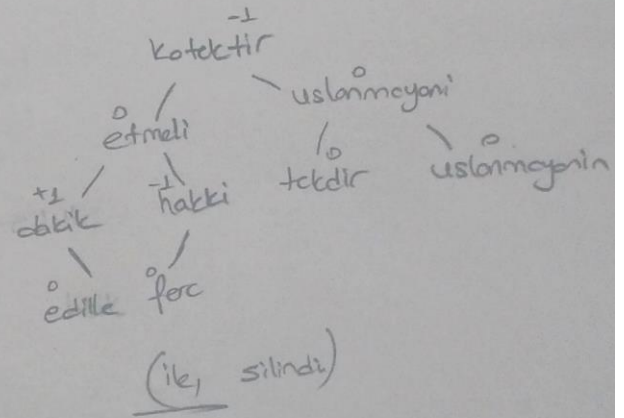 -1
kotektir
0
uslanmayani
0
etmeli
0
tekdir
0
uslanmayanin
+1
dakik
-1
hakki
0
edille
0
ferc
(ile, silindi)